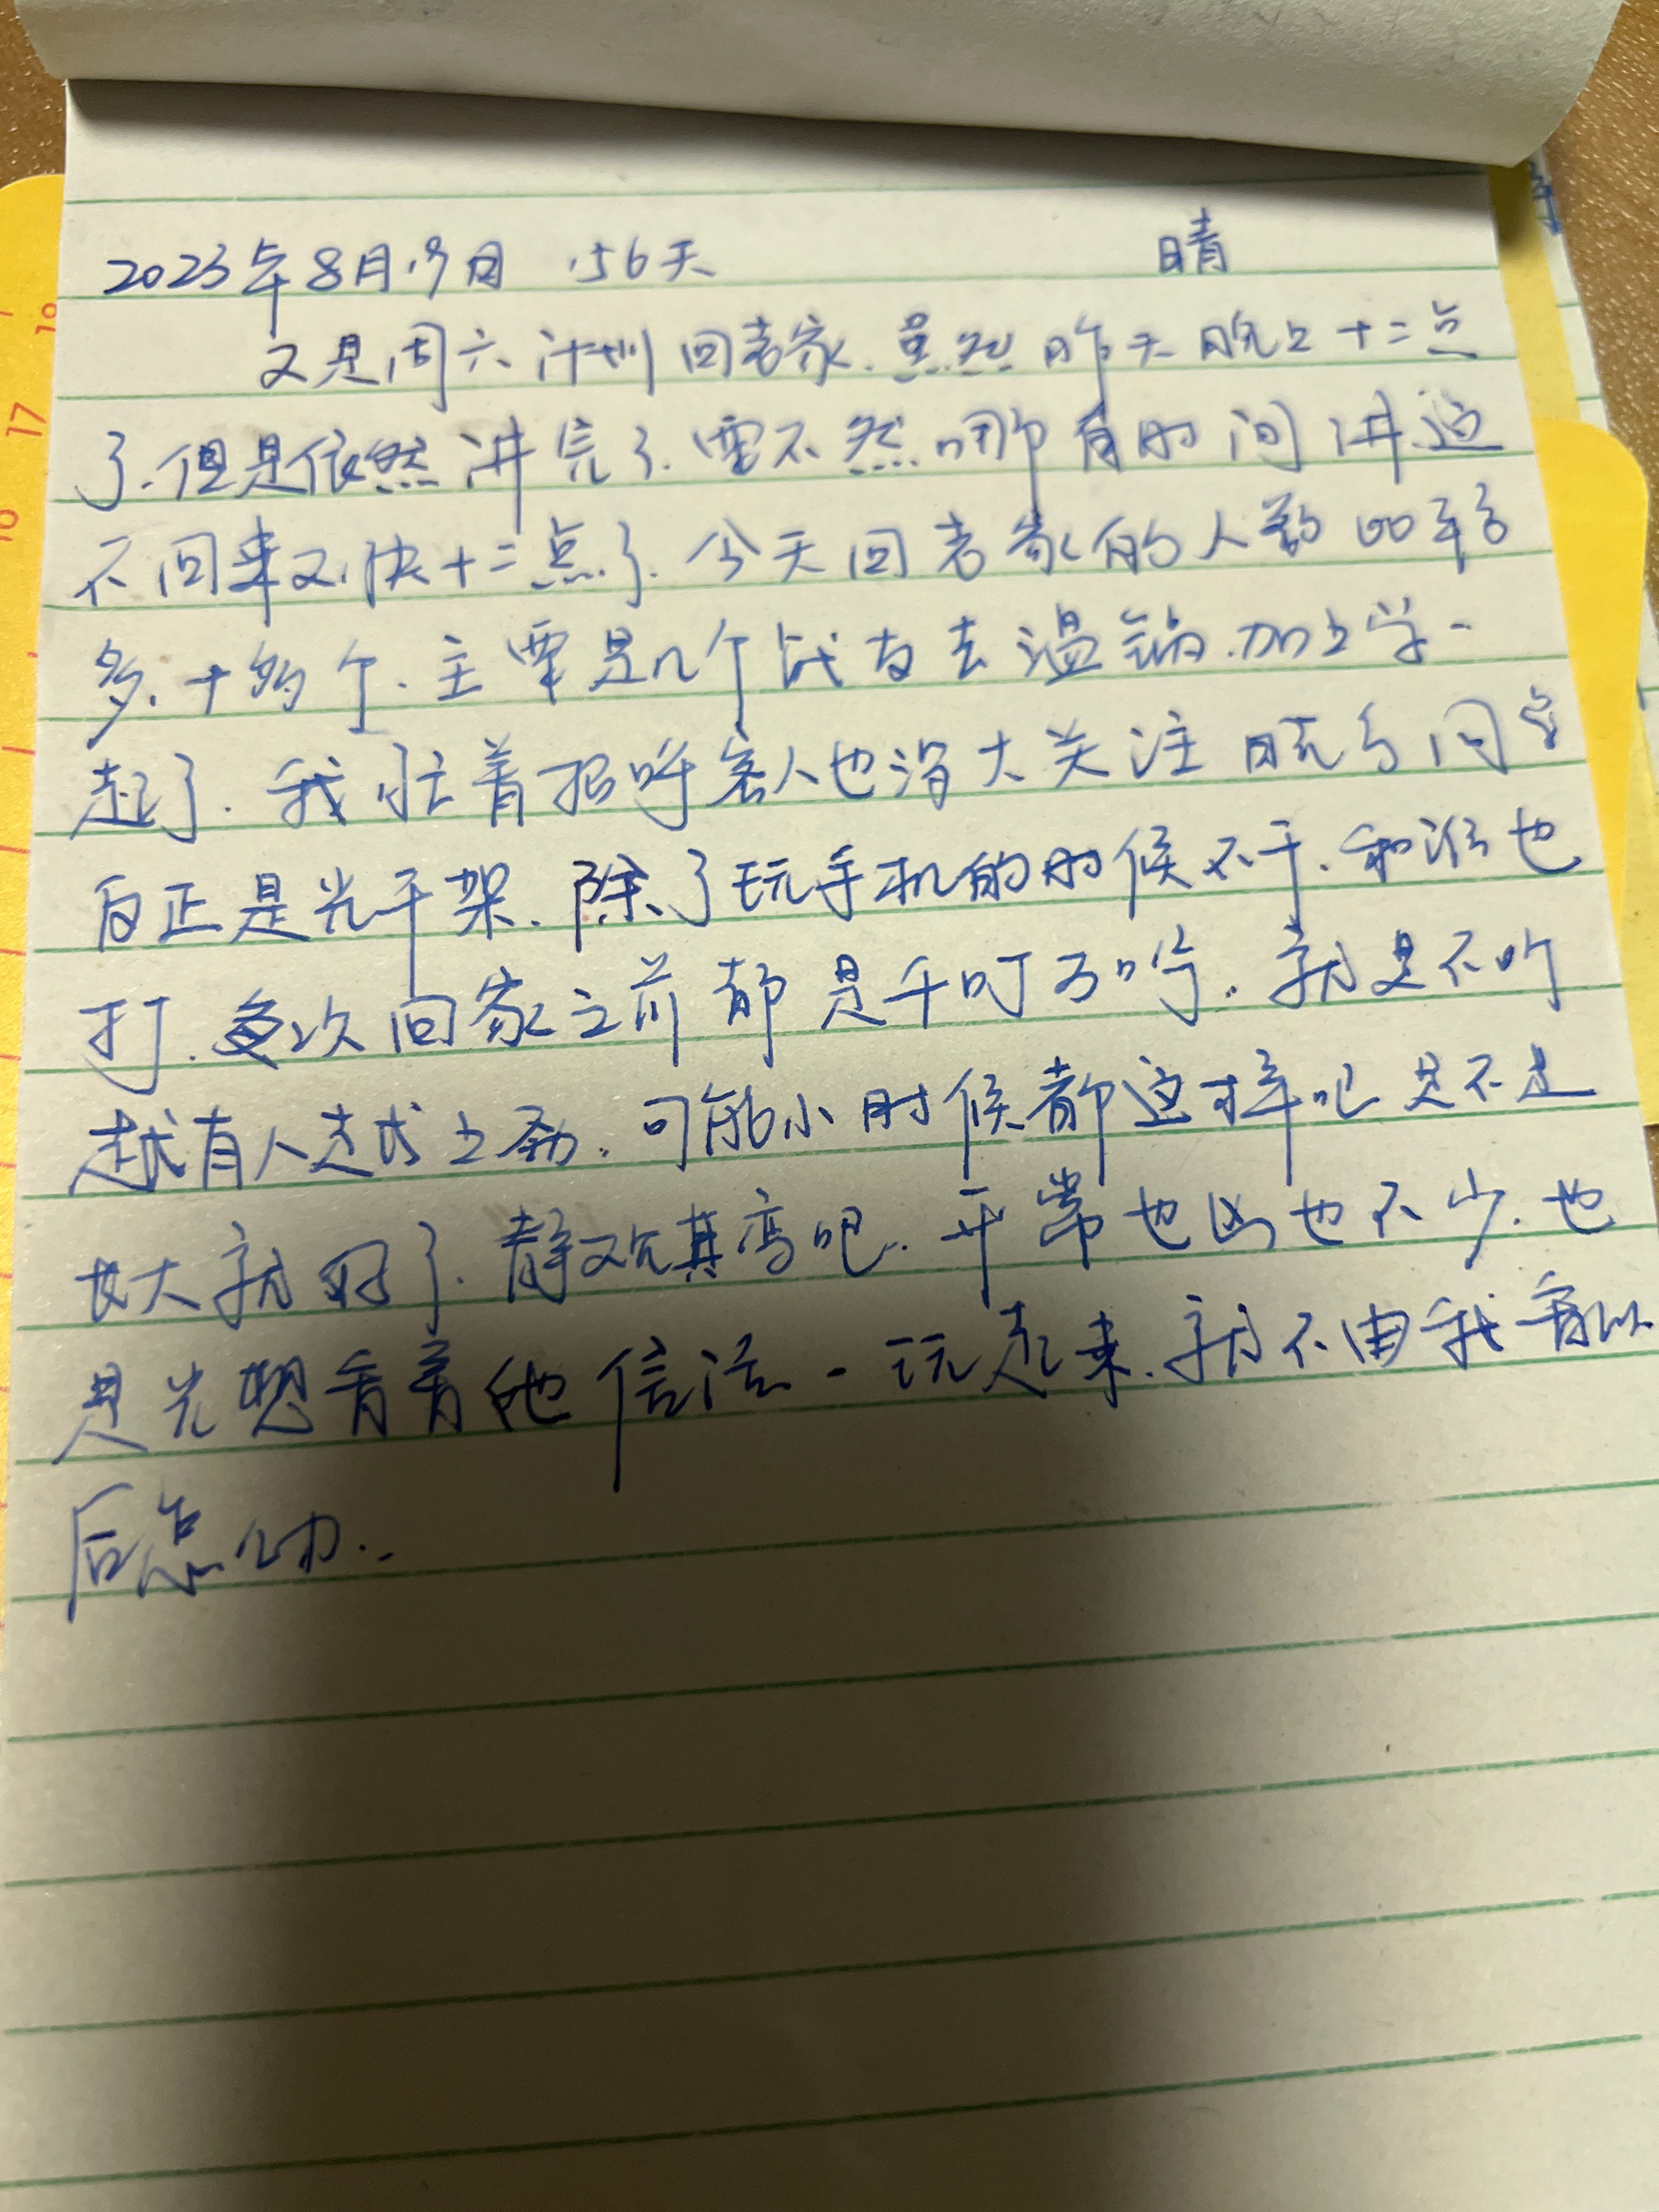 2023年8月19日 156天 晴
又是周六计划回老家.虽然昨天晚上十二点
了.但是依然讲完了.要不然哪有时间讲.这
不回来又快十二点了.今天回老家的人
多.十多个.主要是几个战友去温锅.加上学一
起了.我忙着招呼客人也没大关注
反正是光干架.除了玩手机的时候不干.和谁也
打.每次回家之前都是千叮万咛.就是不听
越有人越上劲.可能小时候都这样吧是不是
长大就好了.静观其变吧.平常也凶也不少.也
是光想着着他信活一玩起来.就不由我
后怎么办..
17